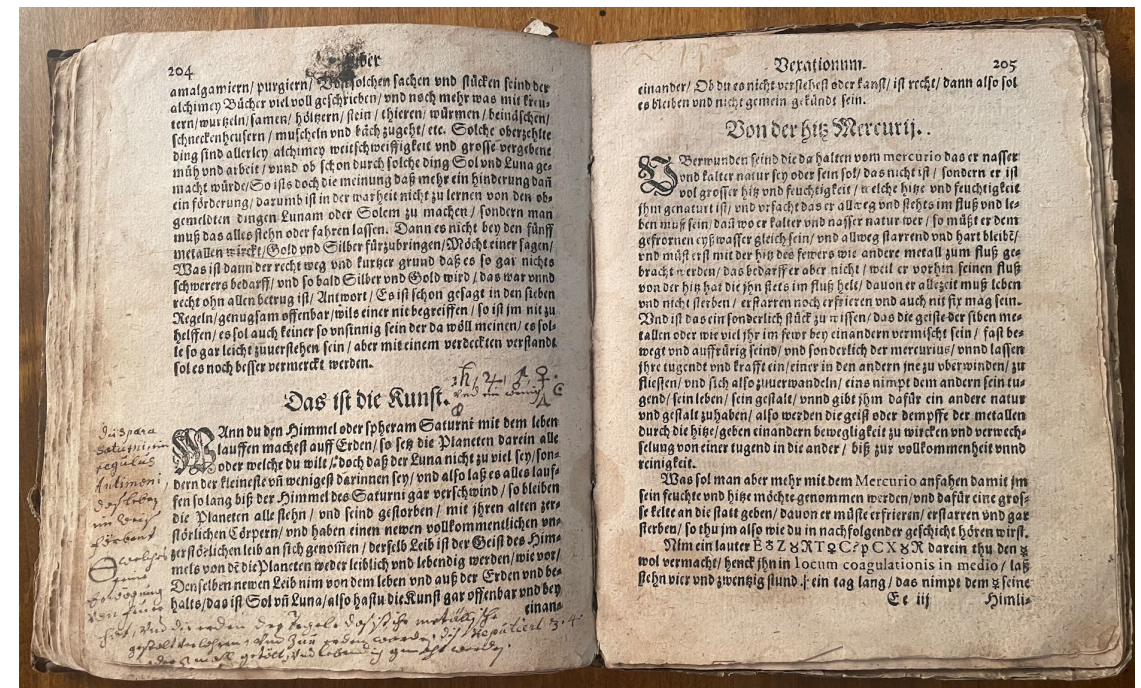 204
ber
amalgamiern/ purgiern/ Von solchen sachen vnd stücken seind der
alchimey Bücher viel voll geschrieben/ vnd noch mehr was mit kreu-
tern/ wurtzeln/ samen/ höltzern/ stein/ thieren/ würmen/ beinäschen/
schneckenheusern/ muscheln vnd bäch zugeht/ etc. Solche oberzehlte
ding sind allerley alchimey weitschweiffigkeit vnd grosse vergebene
müh vnd arbeit/ vnnd ob schon durch solche ding Sol vnd Luna ge-
macht würde/ So ists doch die meinung daß mehr ein hinderung dañ
ein förderung/ darumb ist in der warheit nicht zu lernen von den ob-
gemeldten dingen Lunam oder Solem zu machen/ sondern man
muß das alles stehn oder fahren lassen. Dann es nicht bey den fünff
metallen wirckt/ Gold vnd Silber fürzubringen/ Möcht einer sagen/
Was ist dann der recht weg vnd kurtzer grund daß es so gar nichts
schwerers bedarff/ vnd so bald Silber vnd Gold wird/ das war vnnd
recht ohn allen betrug ist/ Antwort/ Es ist schon gesagt in den sieben
Regeln/ genugsam offenbar/ wils einer nit begreiffen/ so ist jm nit zu
helffen/ es sol auch keiner so vnsinnig sein der da wöll meinen/ es sol-
le so gar leicht zuuerstehen sein/ aber mit einem verdeckten verstandt
sol es noch besser vermerckt werden.
♄, ♃, ♂, ♀.
Das ist die Kunst.
WAnn du den Himmel oder spheram Saturni mit dem leben
lauffen machest auff Erden/ so setz die Planeten darein alle
oder welche du wilt/ doch daß der Luna nicht zu viel sey/ son-
dern der kleineste vñ wenigest darinnen sey/ vnd also laß es alles lauf-
fen so lang biß der Himmel des Saturni gar verschwind/ so bleiben
die Planeten alle stehn/ vnd seind gestorben/ mit jhren alten zer-
störlichen Cörpern/ vnd haben einen newen vollkommenlichen vn-
zerstörlichen leib an sich genom̃en/ derselb Leib ist der Geist des Him-
mels von dẽ die Planeten weder leiblich vnd lebendig werden/ wie vor/
Denselben newen Leib nim von dem leben vnd auß der Erden vnd be-
halts/ das ist Sol vñ Luna/ also hastu die Kunst gar offenbar vnd bey
einan-
saturni, ein
regulus
Antimoni
Vexationum.
205
einander/ Ob du es nicht verstehest oder kanst/ ist recht/ dann also sol
es bleiben vnd nicht gemein gekündt sein.
Von der hitz Mercurij.
VBerwunden seind die da halten vom mercurio das er nasser
vnd kalter natur sey oder sein sol/ das nicht ist/ sondern er ist
vol grosser hitz vnd feuchtigkeit/ welche hitze vnd feuchtigkeit
jhm genaturt ist/ vnd vrsacht das er allweg vnd stehts im fluß vnd le-
ben muß sein/ dañ wo er kalter vnd nasser natur wer/ so müßt er dem
gefrornen eyß wasser gleich sein/ vnd allweg starrend vnd hart bleibẽ/
vnd müst erst mit der hitz des fewers wie andere metall zum fluß ge-
bracht werden/ das bedarff er aber nicht/ weil er vorhin seinen fluß
von der hitz hat die jhn stets im fluß helt/ dauon er allezeit muß leben
vnd nicht sterben/ erstarren noch erfrieren vnd auch nit fix mag sein.
Vnd ist das ein sonderlich stück zu wissen/ das die geiste der siben me-
tallen oder wie viel jhr im fewr bey einandern vermischt sein/ fast be-
wegt vnd auffrürig seind/ vnd sonderlich der mercurius/ vnnd lassen
jhre tugendt vnd krafft ein/ einer in den andern jne zu vberwinden/ zu
fliessen/ vnd sich also zuuerwandeln/ eins nimpt dem andern sein tu-
gend/ sein leben/ sein gestalt/ vnnd gibt jhm dafür ein andere natur
vnd gestalt zuhaben/ also werden die geist oder dempffe der metallen
durch die hitze/ geben einandern bewegligkeit zu wircken vnd verwech-
selung von einer tugend in die ander/ biß zur vollkommenheit vnnd
reinigkeit.
Was sol man aber mehr mit dem Mercurio anfahen damit jm
sein feuchte vnd hitze möchte genommen werden/ vnd dafür eine gros-
se kelte an die statt geben/ dauon er müste erfrieren/ erstarren vnd gar
sterben/ so thu jm also wie du in nachfolgender geschicht hören wirst.
Nim ein lauter darein thu den ☿
wol vermacht/ henck jhn in locum coagulationis in medio/ laß
stehn vier vnd zwentzig stund. ein tag lang/ das nimpt dem ☿ seine
Ee iij
Himli-